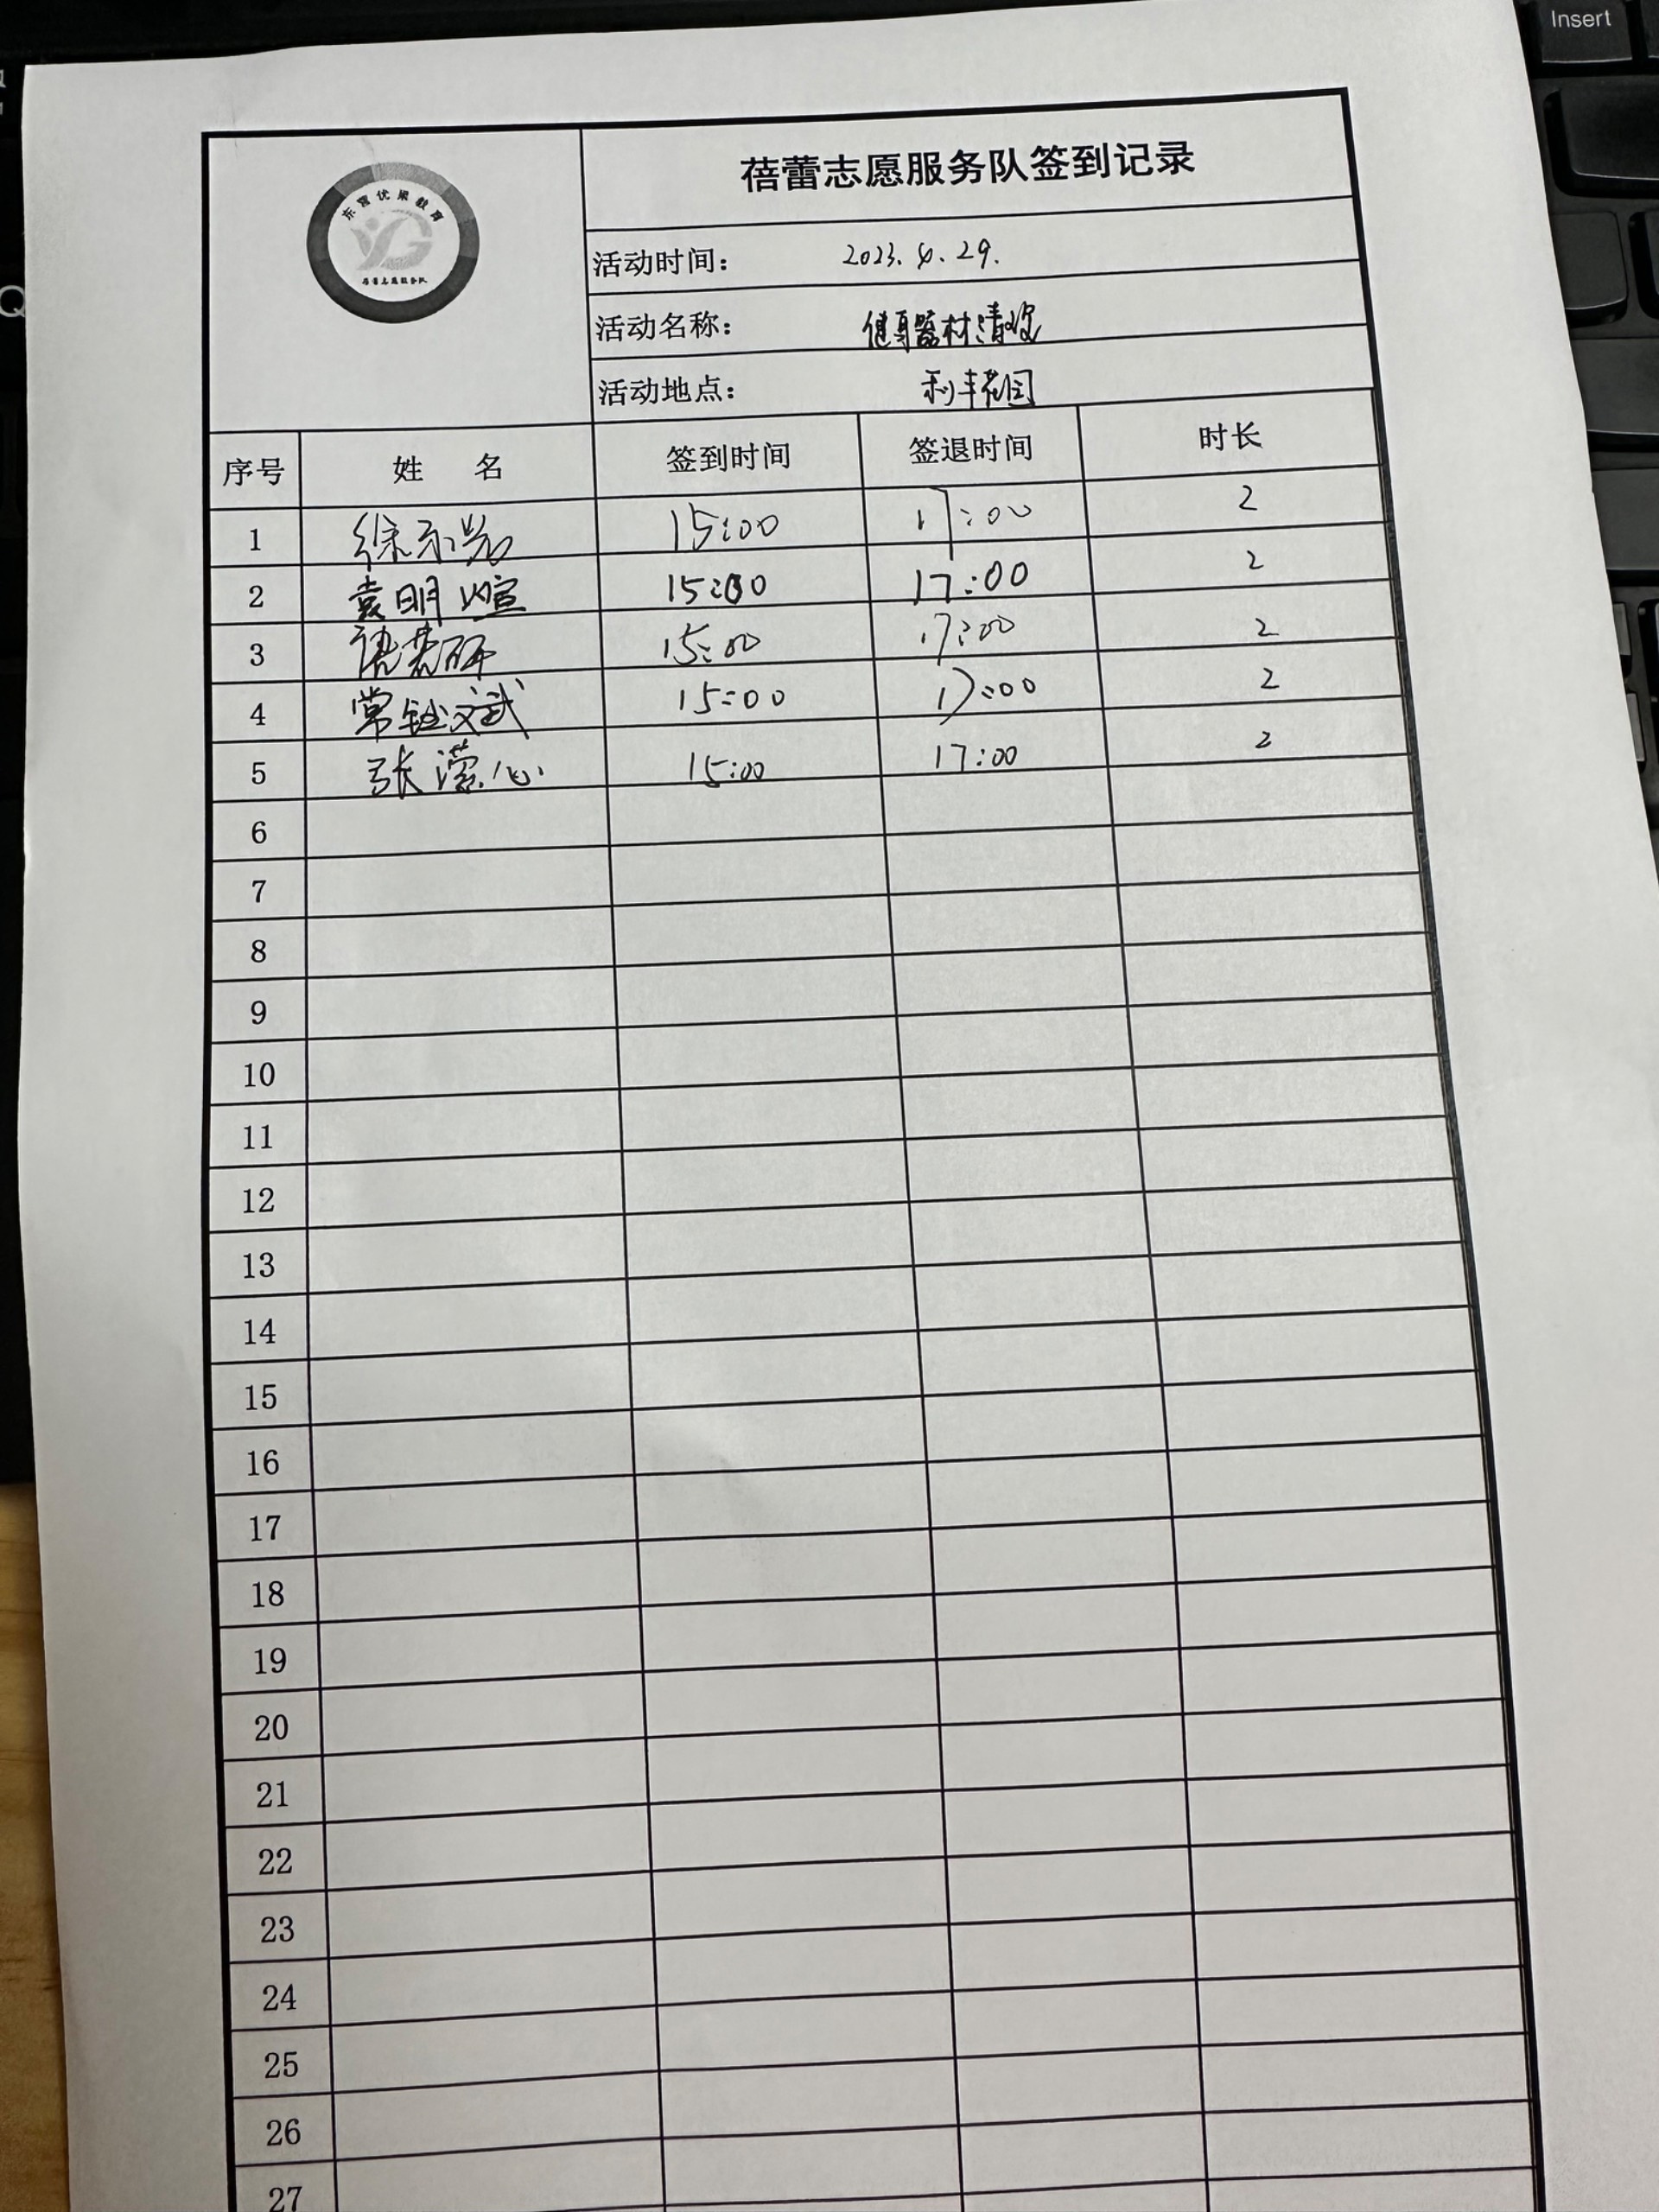 Insert
Q
东营优渠教育
YG
蓓蕾志愿服务队
蓓蕾志愿服务队签到记录
活动时间: 2023.4.29.
活动名称: 健身器材清
活动地点: 利丰花园
序号 姓 名 签到时间 签退时间 时长
1 徐 15:00 17:00 2
2 袁明煊 15:00 17:00 2
3 15:00 17:00 2
4 常 15:00 17:00 2
5 张滢心 15:00 17:00 2
6
7
8
9
10
11
12
13
14
15
16
17
18
19
20
21
22
23
24
25
26
27